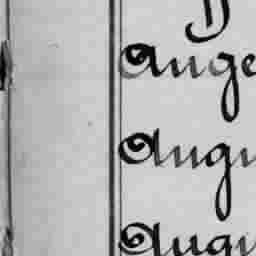 Ange
Augu
Augu